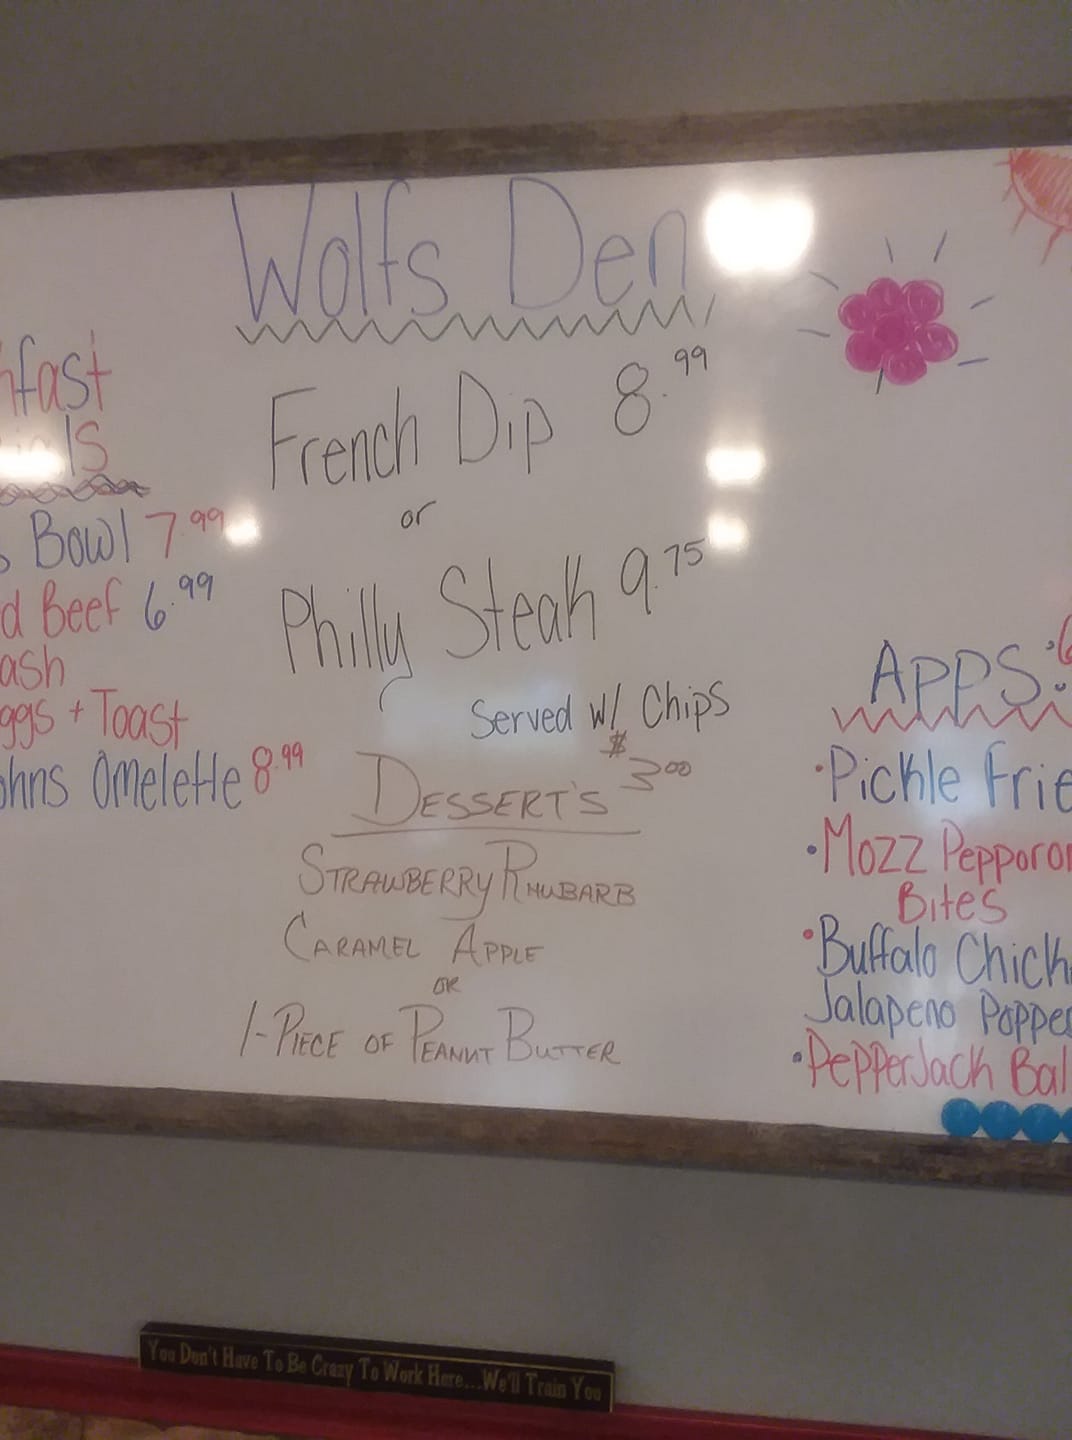 Wolfs Den
French Dip 8.99
or
Philly Steak 9.75
Served w/ Chips
DESSERT'S $3.00
STRAWBERRY RHUBARB
CARAMEL APPLE
OR
1-PIECE OF PEANUT BUTTER
Bowl 7.99
Beef 6.99
+ Toast
Omelette 8.99
APPS:
•Pickle
•Mozz
Bites
•Buffalo
Jalapeno
•PepperJack
You Don't Have To Be Crazy To Work Here...We'll Train You